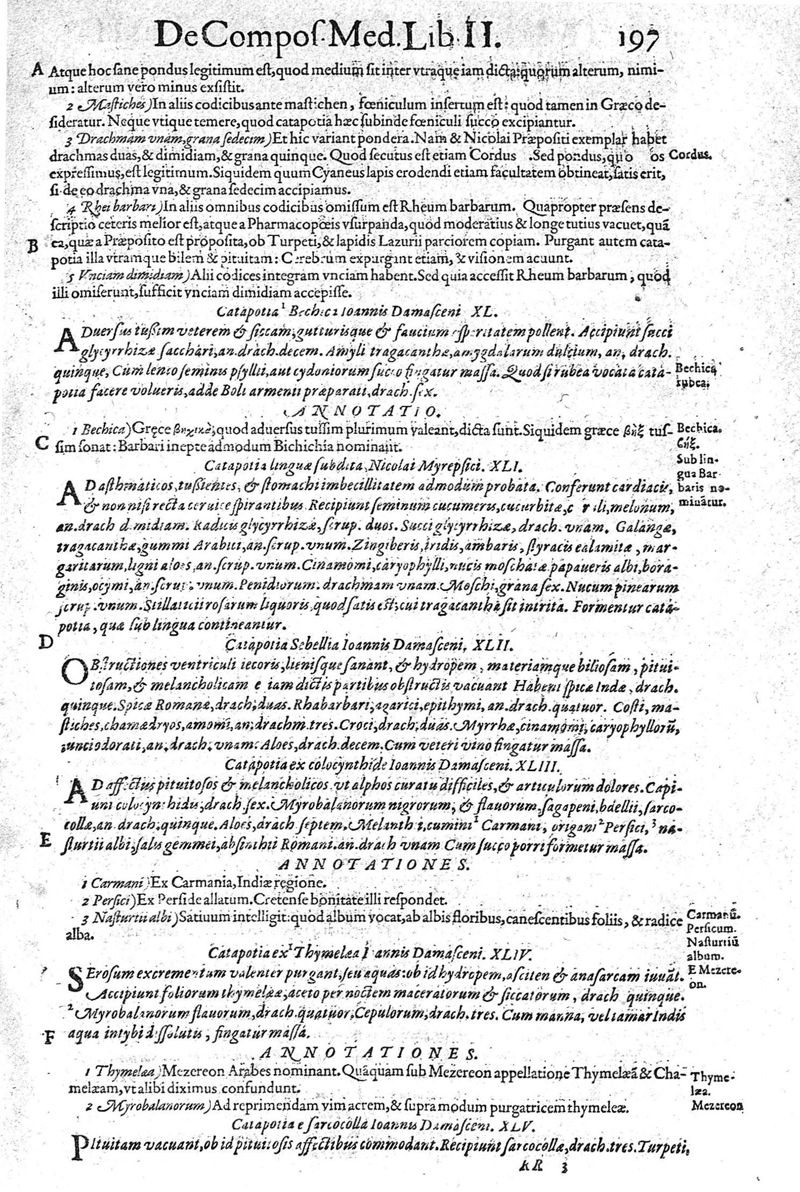 De Compos. Med. Lib. II. 197
A Atque hoc sane pondus legitimum est, quod medium sit inter vtraque iam dicta: quorum alterum, nimi-
um: alterum vero minus exsistit.
2 Mastiches) In aliis codicibus ante mastichen, fœniculum insertum est: quod tamen in Græco de-
sideratur. Neque vtique temere, quod catapotia hæc subinde fœniculi succo excipiantur.
3 Drachmam vnam, grana sedecim) Et hic variant pondera. Nam & Nicolai Præpositi exemplar habet
drachmas duas, & dimidiam, & grana quinque. Quod secutus est etiam Cordus. Sed pondus, quo os Cordus.
expressimus, est legitimum. Siquidem quum Cyaneus lapis erodendi etiam facultatem obtineat, satis erit,
si de eo drachma vna, & grana sedecim accipiamus.
4 Rhei barbari) In aliis omnibus codicibus omissum est Rheum barbarum. Quapropter præsens de-
scriptio ceteris melior est, atque a Pharmacopœis vsurpanda, quod moderatius & longe tutius vacuet, quā
B ea, quæ a Præposito est proposita, ob Turpeti, & lapidis Lazurii parciorem copiam. Purgant autem cata-
potia illa vtramque bilem & pituitam: Cerebrum expurgant etiam, & visionem acuunt.
5 Vnciam dimidiam) Alii codices integram vnciam habent. Sed quia accessit Rheum barbarum, quod
illi omiserunt, sufficit vnciam dimidiam accepisse.
Catapotia 1 Bechica Ioannis Damasceni XL.
ADuersus tussim veterem & siccam, gutturisque & faucium asperitatem pollent. Accipiunt succi
glycyrrhizæ sacchari, an. drach. decem. Amyli tragacanthæ, amygdalarum dulcium, an. drach.
quinque, Cum lento seminis psyllii, aut cydoniorum succo fingatur massa. Quod si rubea vocata cata- Bechica
potia facere volueris, adde Boli armenti præparati, drach. sex. rubea.
ANNOTATIO.
1 Bechica) Grece βηχικὰ, quod aduersus tussim plurimum valeant, dicta sunt. Siquidem græce βὴξ tus- Bechica.
C sim sonat: Barbari inepte admodum Bichichia nominant. βὴξ.
Catapotia linguæ subdita, Nicolai Myrepsici. XLI. Sub lin-
gua Bar-
AD asthmaticos, tussientes, & stomachi imbecillitatem admodum probata. Conferunt cardiacis, baris no-
& non nisi recta ceruice spirantibus. Recipiunt seminum cucumeris, cucurbitæ, citrili, melonum, minātur.
an. drach dimidiam. Radicis glycyrrhizæ, scrup. duos. Succi glycyrrhizæ, drach. vnam. Galangæ,
tragacanthæ, gummi Arabici, an. scrup. vnum. Zingiberis, iridis, ambaris, styracis calamitæ, mar-
garitarum, ligni aloes, an. scrup. vnum. Cinamomi, caryophylli, nucis moschatæ papaueris albi, bora-
ginis, ocymi, an. scrup. vnum. Penidiorum drachmam vnam. Moschi, grana sex. Nucum pinearum
scrup. vnum. Stillatitii rosarum liquoris, quod satis est, cui tragacantha sit intrita. Formentur cata-
potia, quæ sub lingua contineantur.
D Catapotia Sebellia Ioannis Damasceni, XLII.
OBstructiones ventriculi iecoris, lienisque sanant, & hydropem, materiamque biliosam, pitui-
tosam, & melancholicam e iam dictis partibus obstructis vacuant Habent spicæ Indæ, drach.
quinque. Spicæ Romanæ, drach, duas. Rhabarbari, agarici, epithymi, an. drach. quatuor. Costi, ma-
stiches, chamædryos, amomi, an, drachm. tres. Croci, drach, duas. Myrrhæ, cinamomi, caryophyllorū,
iunci odorati, an, drach, vnam. Aloes, drach. decem. Cum veteri vino fingatur massa.
Catapotia ex colocynthide Ioannis Damasceni. XLIII.
AD affectus pituitosos & melancholicos, vt alphos curatu difficiles, & articulorum dolores. Capi-
unt colocynthidis, drach. sex. Myrobalanorum nigrorum, & flauorum, sagapeni, bdellii, sarco-
collæ, an. drach, quinque. Aloes, drach septem. Melanthi, cumini 1 Carmani, origani 2 Persici, 3 na-
E sturtii albi, salis gemmei, absinthii Romani. an. drach vnam Cum succo porri formetur massa.
ANNOTATIONES.
1 Carmani) Ex Carmania, Indiæ regione.
2 Persici) Ex Perside allatum. Cretense bonitate illi respondet.
3 Nasturtii albi) Satiuum intelligit: quod album vocat, ab albis floribus, canescentibus foliis, & radice Carmanū.
alba. Persicum.
Nasturtiū
Catapotia ex 1 Thymelæa Ioannis Damasceni. XLIV. album.
SErosum excrementum valenter purgant, seu aquas: ob id hydropem, asciten & anasarcam iuuāt. E Mezere-
Accipiunt foliorum thymelææ, aceto per noctem maceratorum & siccatorum, drach quinque. on.
2 Myrobalanorum flauorum, drach. quatuor, Cepulorum, drach. tres. Cum manna, vel tamarindis
F aqua intybi dissolutis, fingatur massa.
ANNOTATIONES.
1 Thymelæa) Mezereon Arabes nominant. Quāquam sub Mezereon appellatione Thymelæā & Cha- Thyme-
melæam, vt alibi diximus confundunt. læa.
2 Myrobalanorum) Ad reprimendam vim acrem, & supra modum purgatricem thymelææ. Mezereon
Catapotia e sarcocolla Ioannis Damasceni. XLV.
PItuitam vacuant, ob id pituitosis affectibus commodant. Recipiunt sarcocollæ, drach. tres. Turpeti,
RR 3